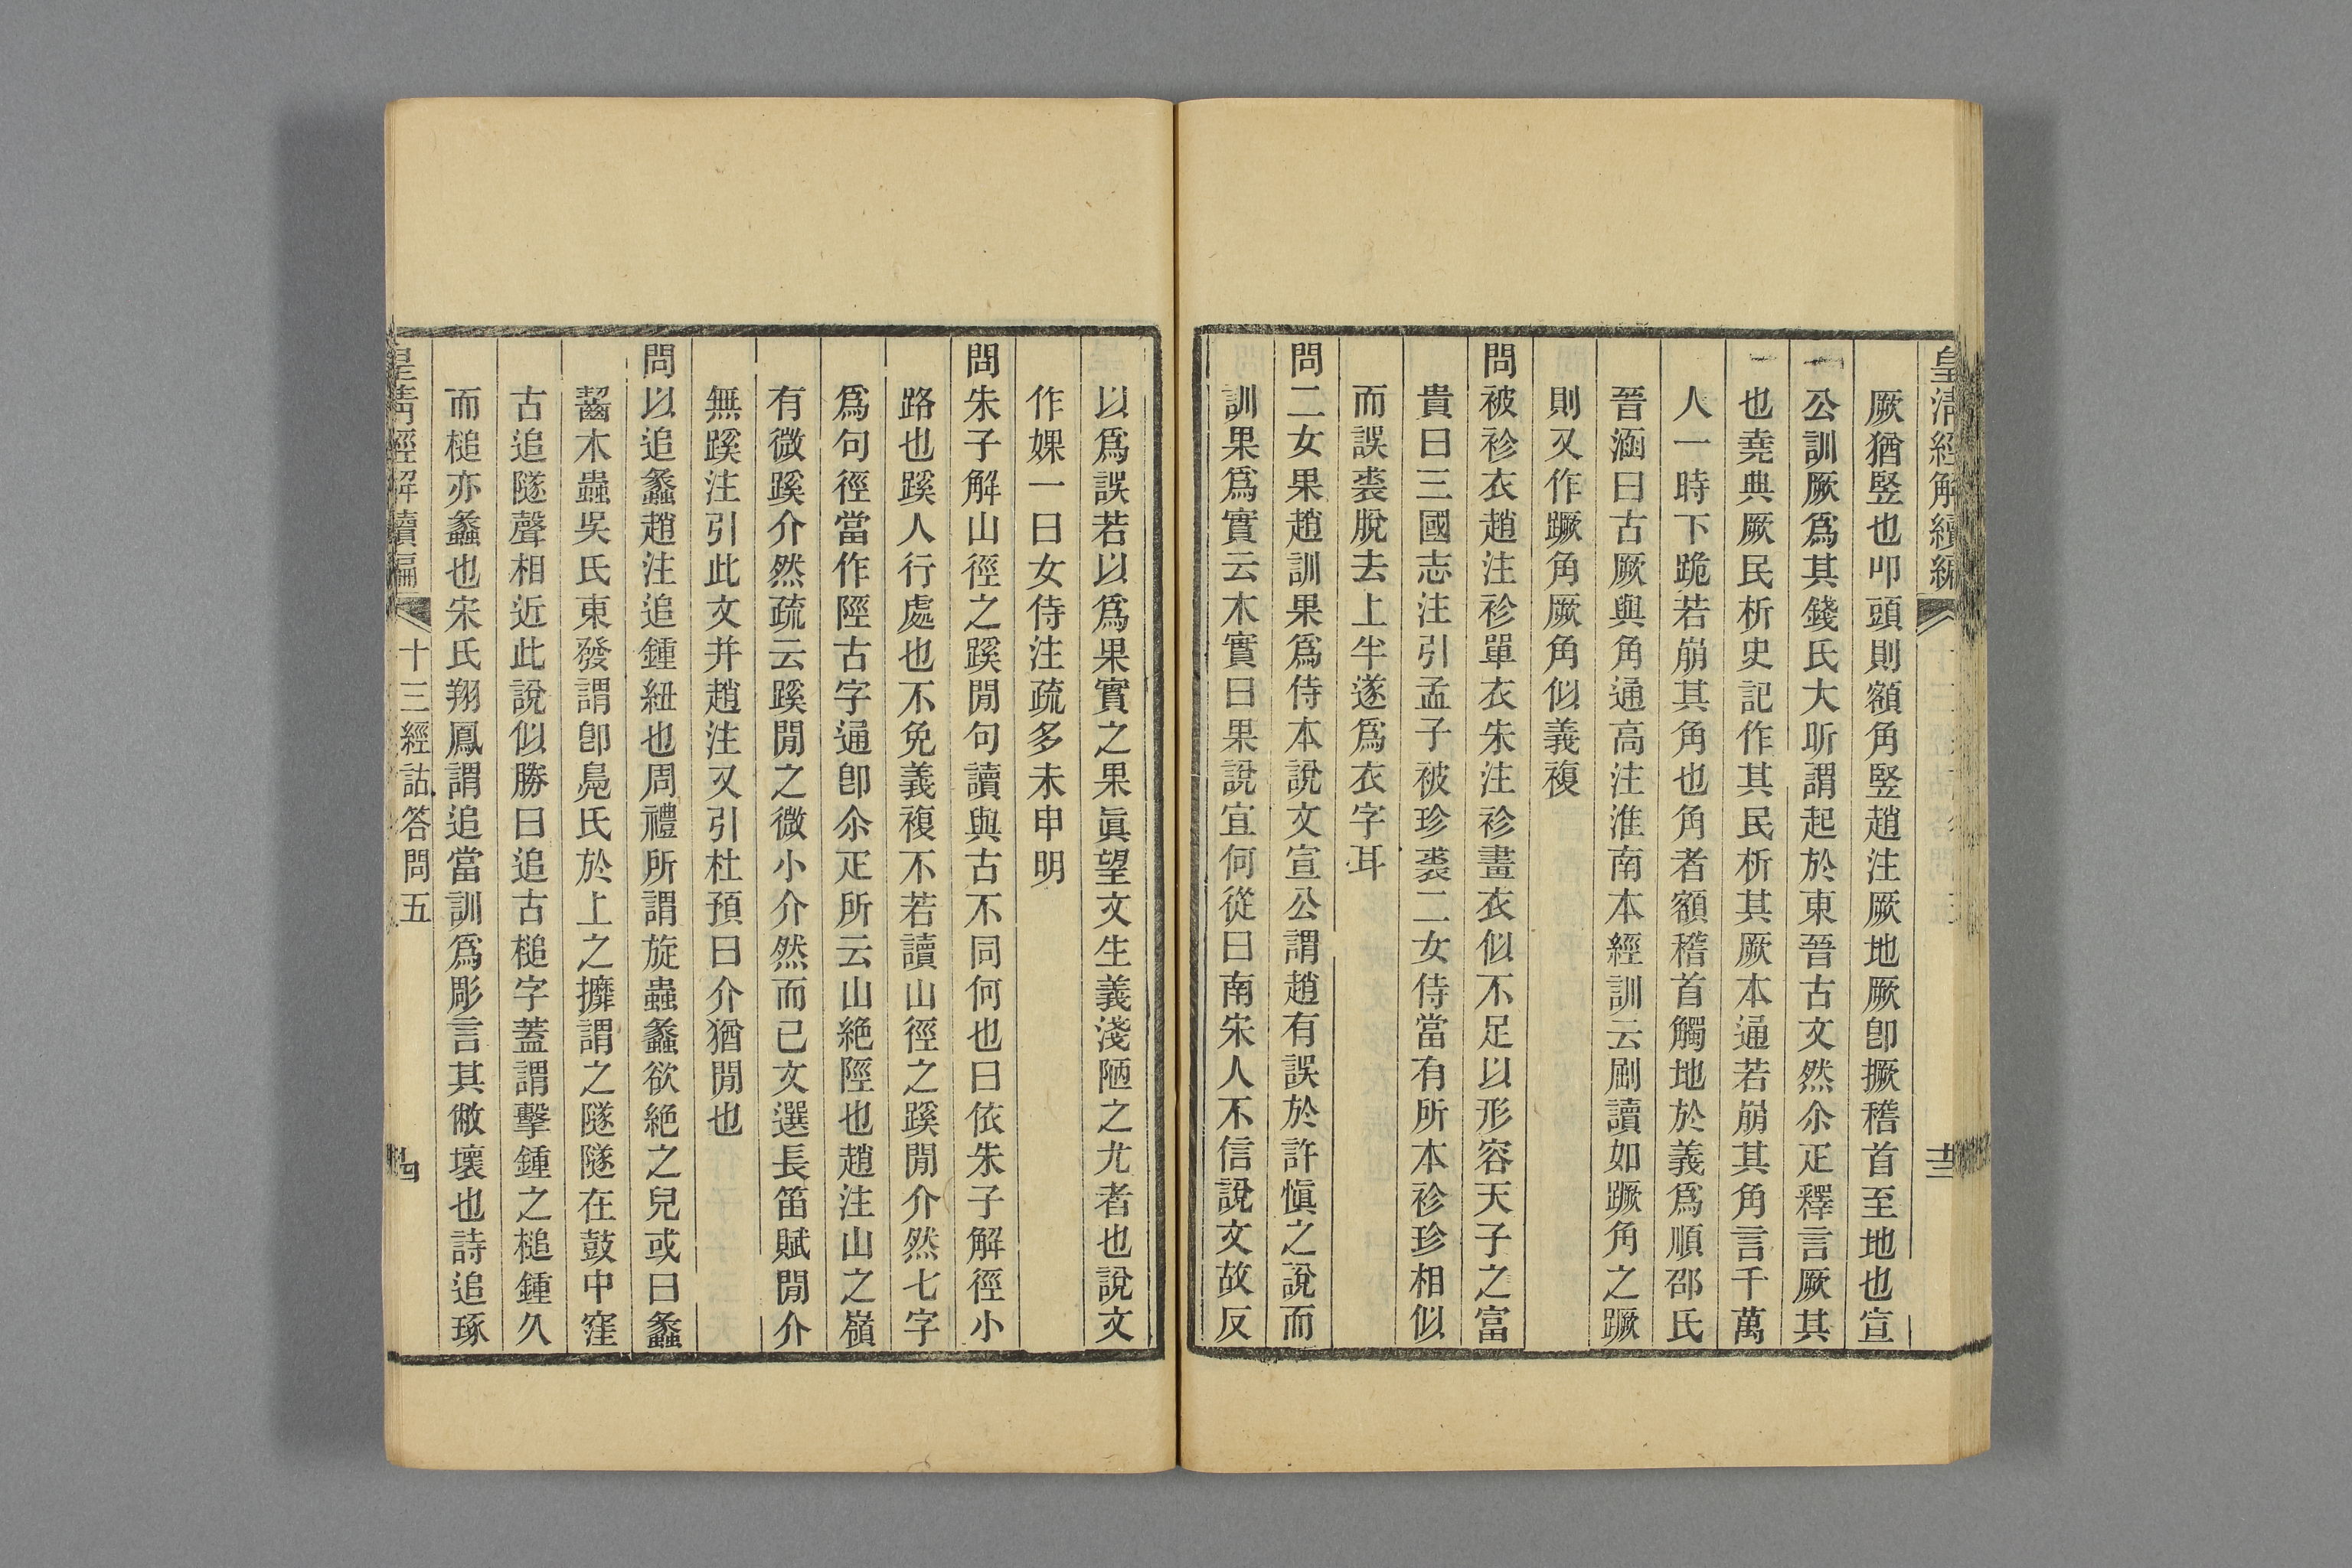 皇清經解續編
厥猶竪也叩頭則額角竪趙注厥地厥卽撅稽首至地也宣
公訓厥爲其錢氏大昕謂起於東晉古文然尒疋釋言厥其
也堯典厥民析史記作其民析其厥本通若崩其角言千萬
人一時下跪若崩其角也角者額稽首觸地於義爲順邵氏
晉涵曰古厥與角通高注淮南本經訓云劂讀如蹶角之蹶
則又作蹶角厥角似義複
問被袗衣趙注袗單衣朱注袗畫衣似不足以形容天子之富
貴曰三國志注引孟子被珍裘二女侍當有所本袗珍相似
而誤裘脫去上半遂爲衣字耳
問二女果趙訓果爲侍本說文宣公謂趙有誤於許愼之說而
訓果爲實云木實曰果說宜何從曰南宋人不信說文故反
以爲誤若以爲果實之果眞望文生義淺陋之尤者也說文
作婐一曰女侍注疏多未申明
問朱子解山徑之蹊閒句讀與古不同何也曰依朱子解徑小
路也蹊人行處也不免義複不若讀山徑之蹊閒介然七字
爲句徑當作陘古字通卽尒疋所云山絶陘也趙注山之嶺
有微蹊介然疏云蹊閒之微小介然而已文選長笛賦閒介
無蹊注引此文并趙注又引杜預曰介猶閒也
問以追蠡趙注追鍾紐也周禮所謂旋蟲蠡欲絶之皃或曰蠡
齧木蟲吳氏東發謂卽鳧氏於上之攠謂之隧隧在鼓中窪
古追隧聲相近此說似勝曰追古槌字蓋謂擊鍾之槌鍾久
而槌亦蠡也宋氏翔鳳謂追當訓爲彫言其敝壞也詩追琢
皇淸經解續編
十三經詁答問五